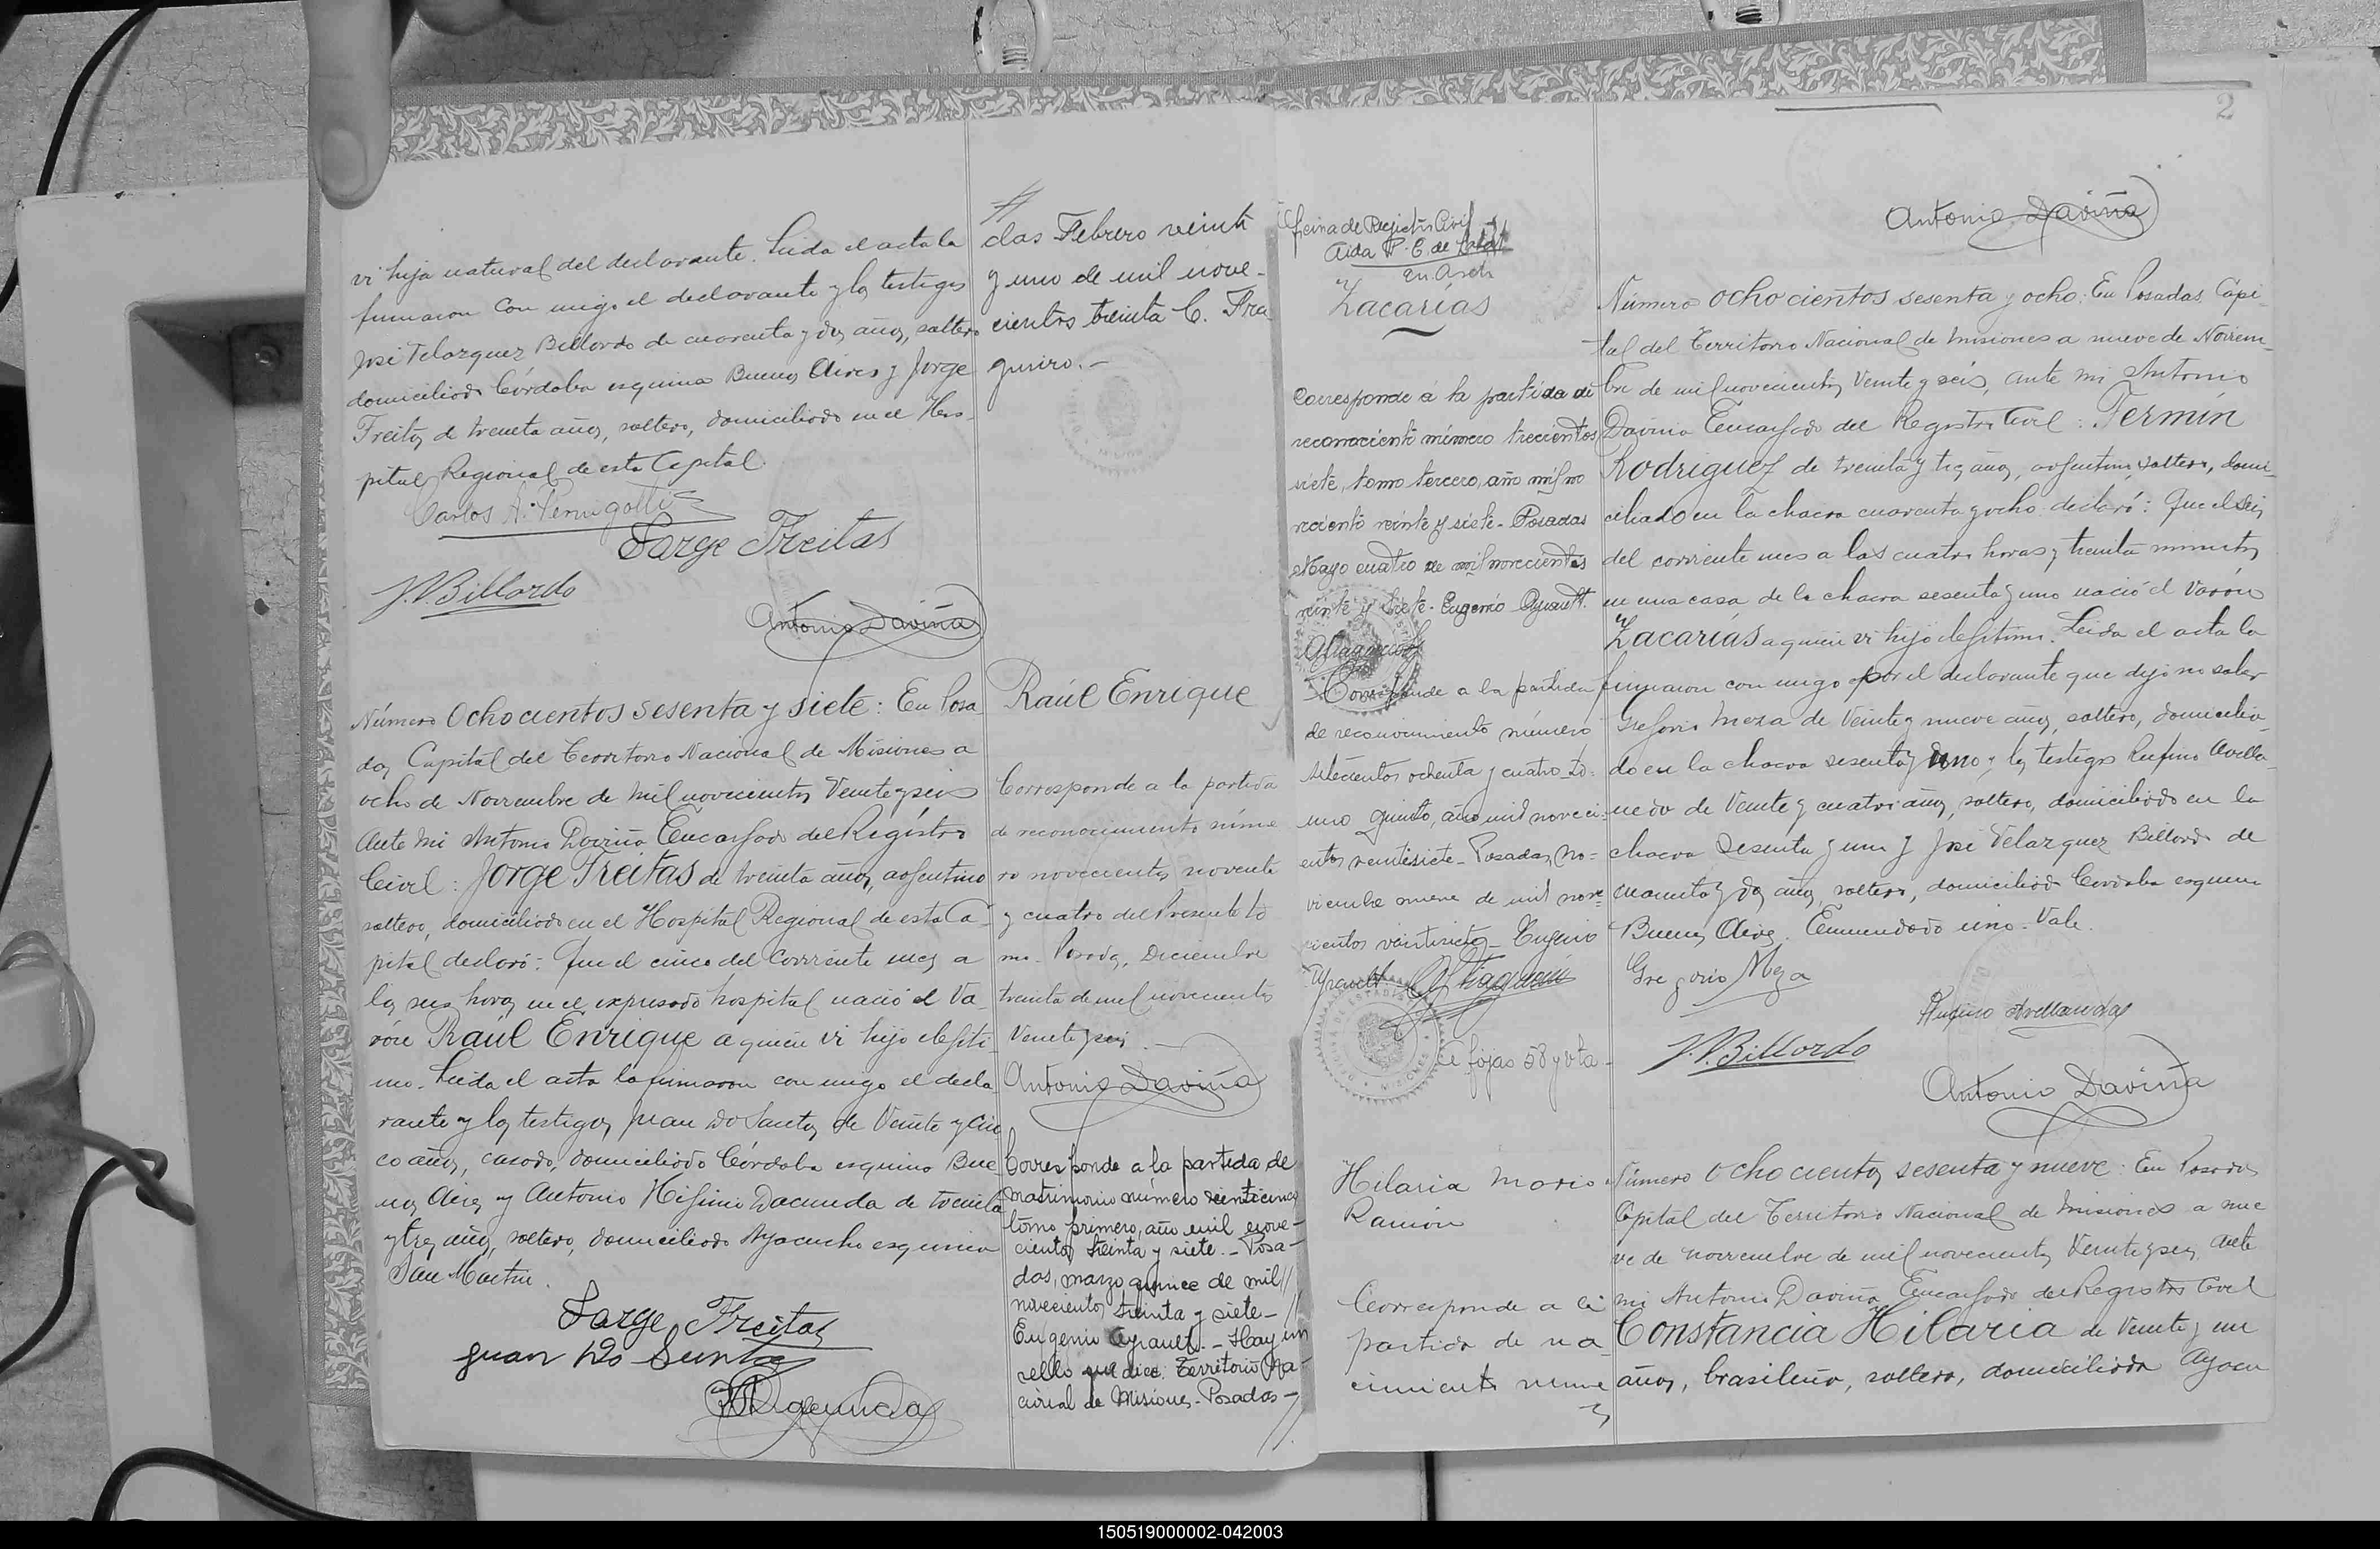 vi hija natural del declarante. Leida el acta la
firmaron con migo el declarante y los testigos
José Velazquez Billordo de cuarenta y dos años, soltero
domiciliado Córdoba esquina Buenos Aires y Jorge
Freitas de treinta años, soltero, domiciliado en el Hos-
pital Regional de esta Capital.
Carlos A.
Jorge Freitas
J.V. Billordo
Antonio Daviña
Número Ochocientos sesenta y siete: En Posa
das Capital del Territorio Nacional de Misiones a
ocho de Noviembre de mil novecientos Veinte y seis
ante mi Antonio Daviña Encargado del Registro
Civil: Jorge Freitas de treinta años, argentino
soltero, domiciliado en el Hospital Regional de esta Ca-
pital declaró: Que el cinco del corriente mes a
las seis horas en el expresado hospital nació el Va-
rón Raúl Enrique a quien vi hijo ilegíti-
mo. Leida el acta la firmaron con migo el decla
rante y los testigos Juan Do Santos de Veinte y cin
co años, casado, domiciliado Córdoba esquina Bue
nos Aires y Antonio Higinio Dacunda de treinta
y tres años, soltero, domiciliado Ayacucho esquina
San Martin.
Jorge Freitas
Juan Do Santos
das Febrero veinti
y uno de mil nove-
cientos treinta C. Fra
guiro.-
Raúl Enrique
Corresponde a la partida
de reconocimiento núme
ro novecientos noventa
y cuatro del Presente to
mo. Posadas, Diciembre
treinta de mil novecientos
Veinte y seis.
Antonio Daviña
Corresponde a la partida de
matrimonio número veinticinco
tomo primero, año mil nove-
cientos treinta y siete.- Posa-
das, marzo quince de mil//
novecientos treinta y siete-//
Eugenio Ayrault.- Hay un
sello que dice: Territorio Na-
cional de Misiones.-Posadas-//
Oficina de Registro Civil
Aida P. C. de
En. Arch
Zacarías
Corresponde á la partida de
reconociento número trecientos
siete, tomo tercero, año mil no
veciento veinte y siete.- Posadas
Mayo cuatro de mil novecientos
veinte y siete.- Eugenio Ayrault.
Corresponde a la partida
de reconocimiento número
setecientos ochenta y cuatro to=
mo quinto, año mil noveci=
entos veintisiete- Posadas, no=
viembre nueve de mil nove=
cientos veintisiete- Eugenio
Ayrault-
a fojas 58 y vta-
Hilaria Mario
Ramón
Corresponde a la
partida de na
cimiento nume
2
Antonio Daviña
Número ochocientos sesenta y ocho: En Posadas, Capi-
tal del Territorio Nacional de Misiones a nueve de Noviem-
bre de mil novecientos Veinte y seis, ante mi Antonio
Daviña Encargado del Registro Civil: Fermín
Rodriguez de treinta y tres años, argentino, soltero, domi-
ciliado en la chacra cuarenta y ocho declaró: Que el seis
del corriente mes a las cuatro horas y treinta minutos
en una casa de la chacra sesenta y uno nació el Varón
Zacarías a quien vi hijo ilegítimo. Leida el acta la
firmaron con migo por el declarante que dijo no saber
Gregorio Meza de Veinte y nueve años, soltero, domicilia-
do en la chacra sesenta y uno y los testigos Rufino Avella-
nedo de Veinte y cuatro años, soltero, domiciliado en la
chacra sesenta y uno y José Velazquez Billordo de
cuarenta y dos años, soltero, domiciliado Cordoba esquina
Buenos Aires. Enmendado uno. Vale.
Gregorio Meza
Rufino Avellaneda
J.V. Billordo
Antonio Daviña
Número Ochocientos sesenta y nueve: En Posadas
Capital del Territorio Nacional de Misiones a nue
ve de noviembre de mil novecientos Veinte y seis, ante
mi Antonio Daviña Encargado del Registro Civil
Constancia Hilaria de Veinte y un
años, brasileña, soltera, domiciliada Ayacu
150519000002-042003